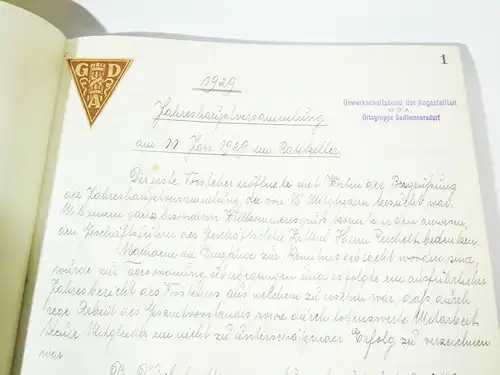 G D A
1
1929
Gewerkschaftsbund der Angestellten
G.D.A.
Ortsgruppe Seifhennersdorf
Jahreshauptversammlung
am 11 Jan 1929 im Ratskeller.
Der erste Vorsteher eröffnete mit Worten der Begrüßung
die Jahreshauptversammlung die von 18 Mitgliedern besucht war.
Mit einem ganz besonderen Willkommensgruß konnte er den anwesen
den Geschäftsführer der Geschäftsstelle Herrn Reichelt bedenken.
Nachdem die Eingänge zur Kenntnis gebracht worden sind,
wurde zur Tagesordnung übergegangen und es erfolgte ein ausführlicher
Jahresbericht des Vorstehers aus welchem zu ersehen war, daß durch
rege Arbeit des Gesamtvorstandes sowie durch lobenswerte Mitarbeit
Mitglieder ein nicht zu unterschätzender Erfolg zu verzeichnen
war